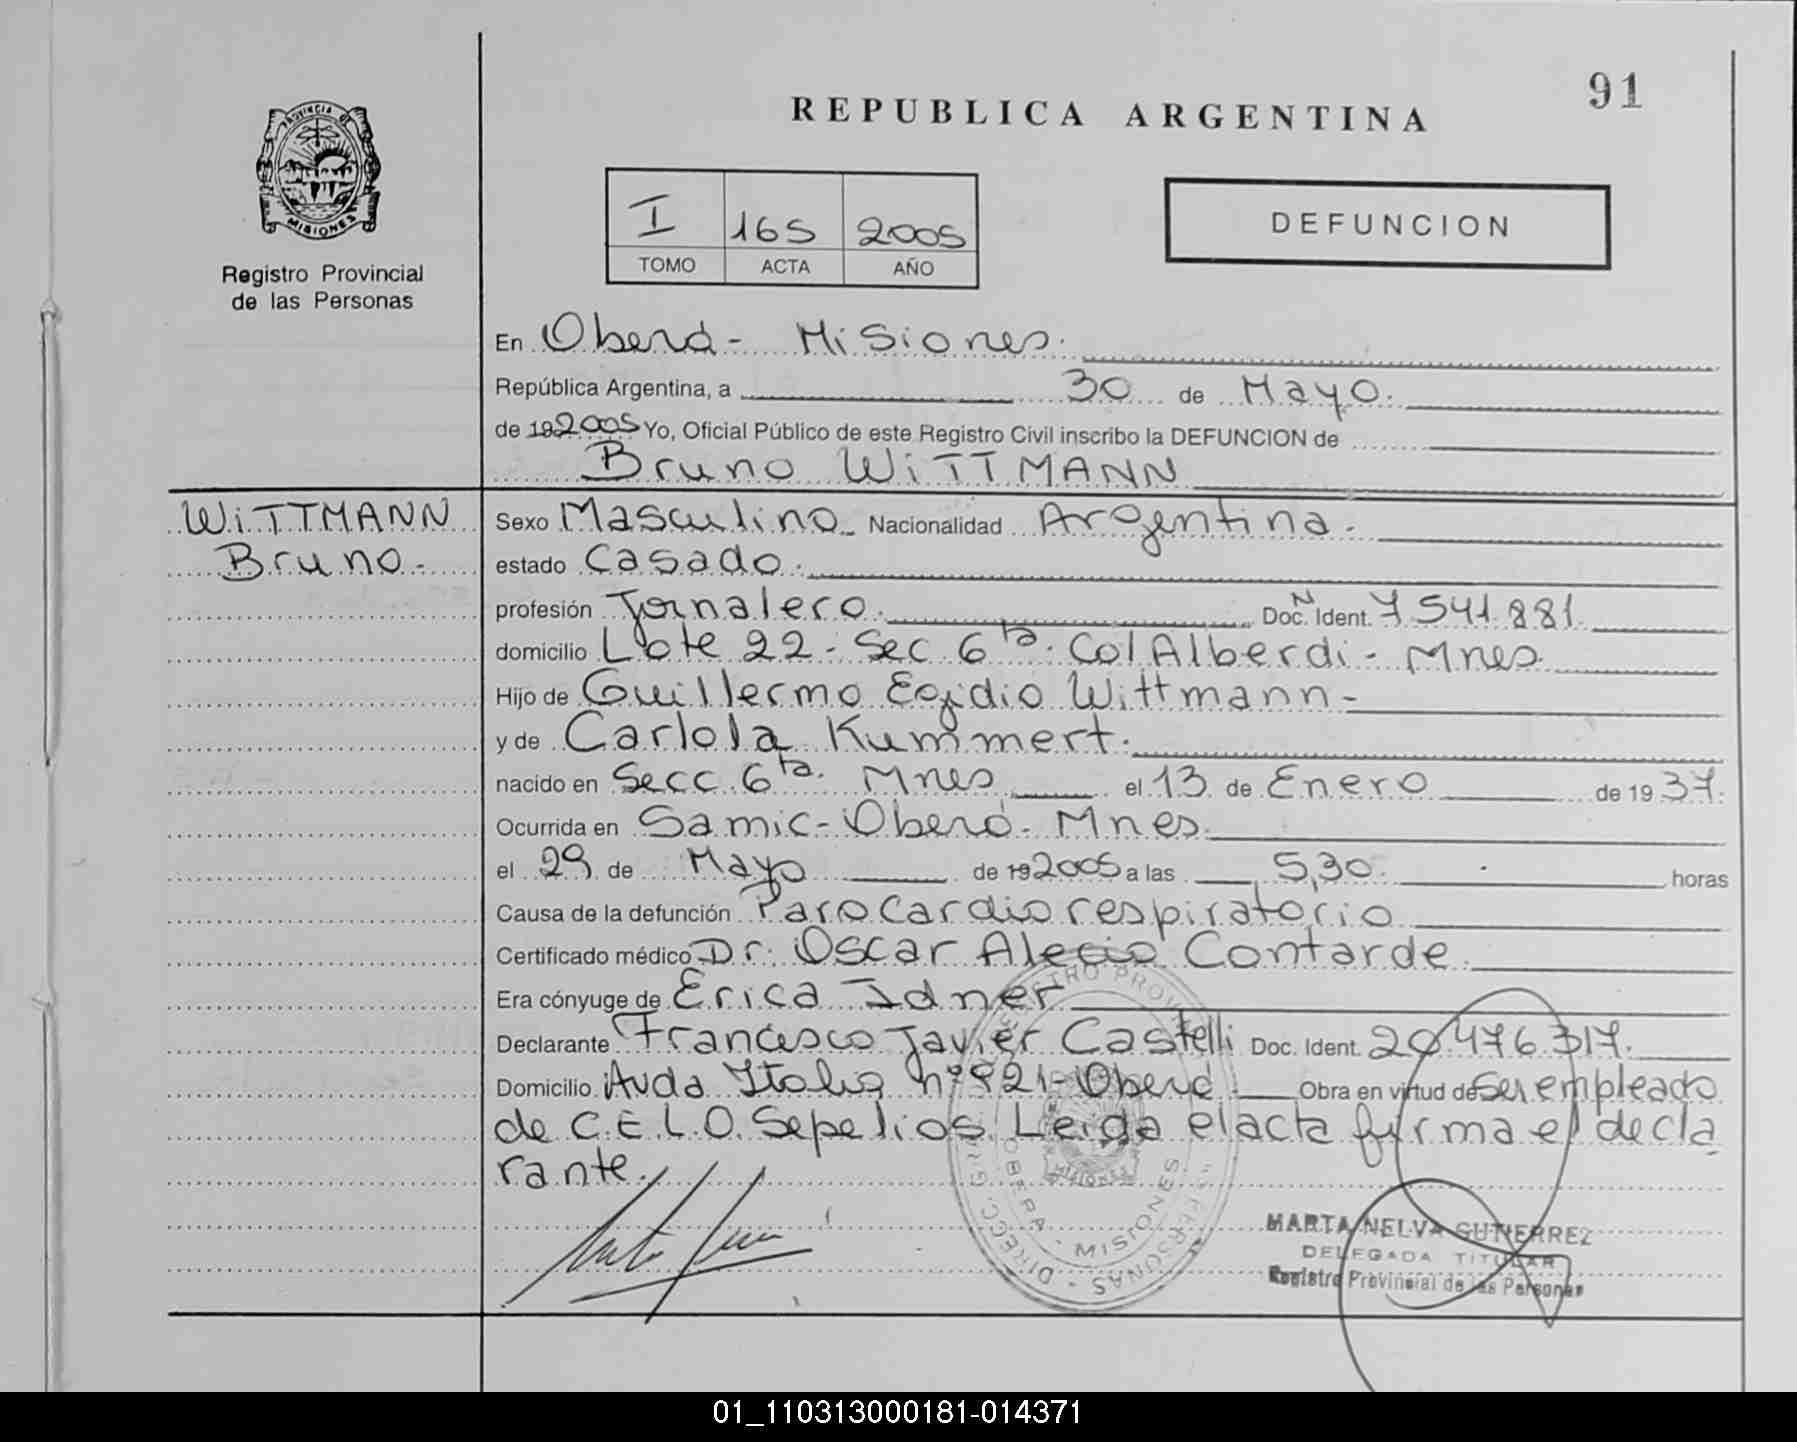 91
REPUBLICA ARGENTINA
PROVINCIA DE
MISIONES
Registro Provincial
de las Personas
I 165 2005
TOMO ACTA AÑO
DEFUNCION
En Oberá - Misiones.
República Argentina, a 30 de Mayo.
de 192005 Yo, Oficial Público de este Registro Civil inscribo la DEFUNCION de
Bruno WiTTMANN
WiTTMANN
Bruno.-
Sexo Masculino Nacionalidad Argentina.
estado Casado.
profesión Jornalero. Doc. N Ident. 7541.881.
domicilio Lote 22 - Sec 6ta. Col Alberdi - Mnes.
Hijo de Guillermo Egidio Wittmann -
y de Carlola Kummert.
nacido en Secc. 6ta. Mnes el 13 de Enero de 1937.
Ocurrida en Samic - Oberá - Mnes.
el 29 de Mayo de 192005 a las 5,30. horas
Causa de la defunción Paro Cardio respiratorio
Certificado médico Dr. Oscar Contarde.
Era cónyuge de Erica Idner
Declarante Francisco Javier Castelli Doc. Ident. 20.476.317.
Domicilio Avda Italia nº 921 - Oberá Obra en virtud de Ser empleado
de C.E.L.O. Sepelios. Leida el acta firma el decla
rante.
OBERA - MISIONES
MISIONES
MARTA NELVA GUTIERREZ
DELEGADA TITULAR
Registro Provincial de las Personas
01_110313000181-014371